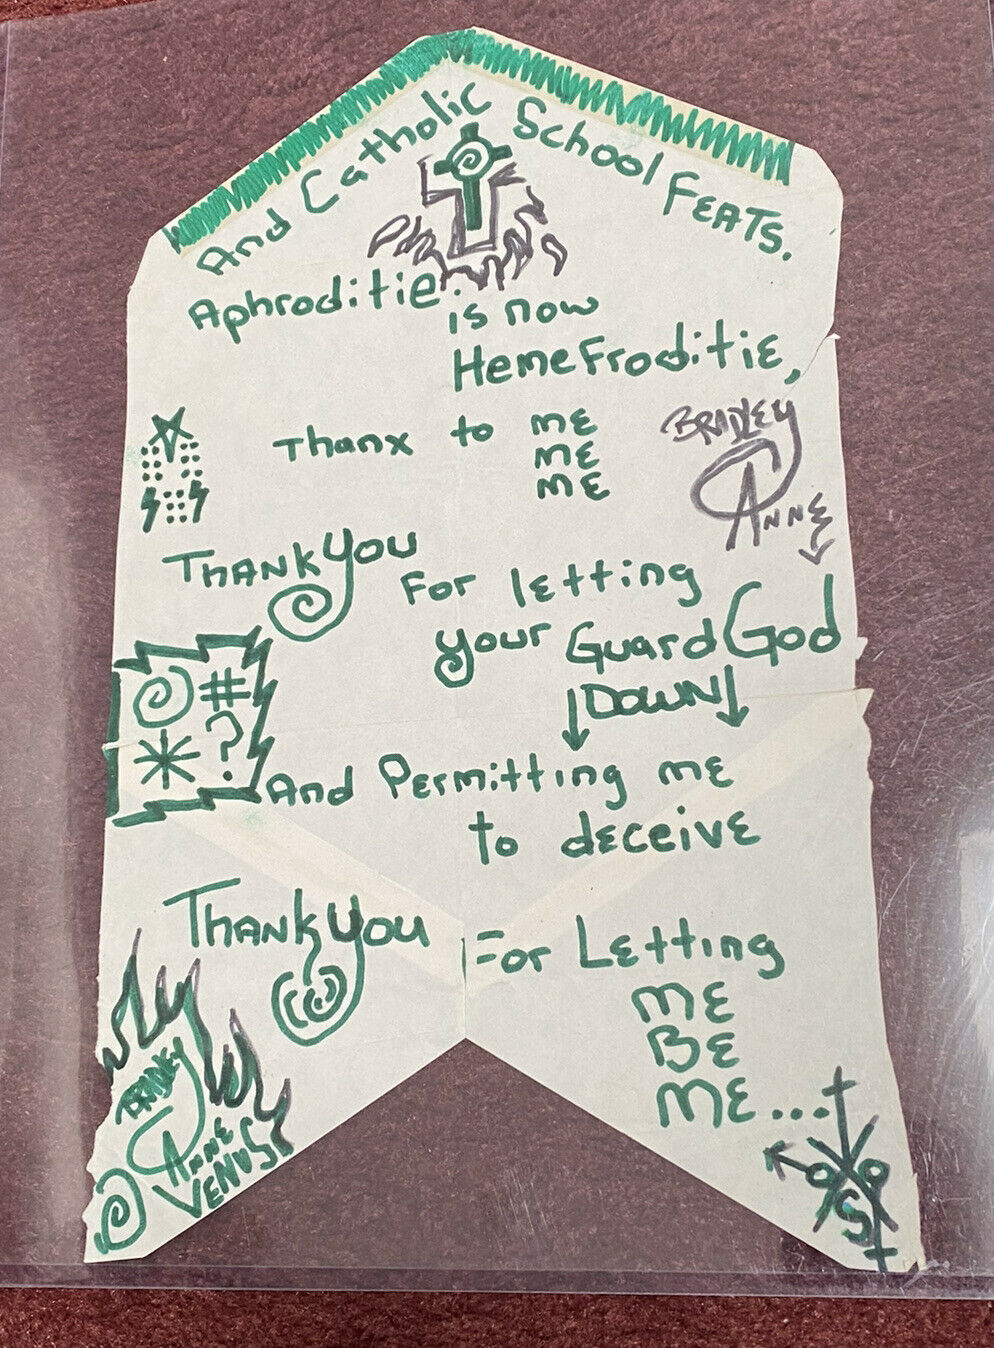 And Catholic School FEATS.
Aphroditie.
is now
Hemefroditie,
Thanx to ME
ME
ME
BRADLEY
ANNE
THANK YOU
For letting
your Guard God
DOWN
#
?
*
And Permitting me
to deceive
THANK YOU For Letting
ME
BE
ME...
BRADLEY
ANNE
VENUS
S